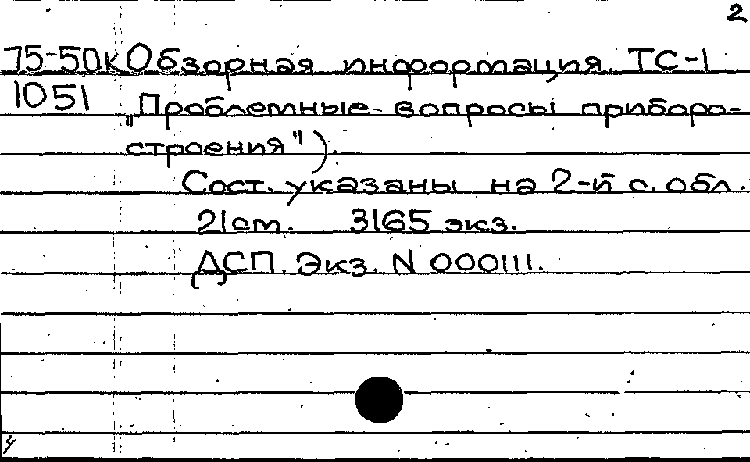 2
75-50к Обзорная информация. ТС-1
1051 „Проблемные вопросы приборо-
строения").
Сост. указаны на 2-й с. обл.
21 см. 3165 экз.
ДСП. Экз. N 000111.